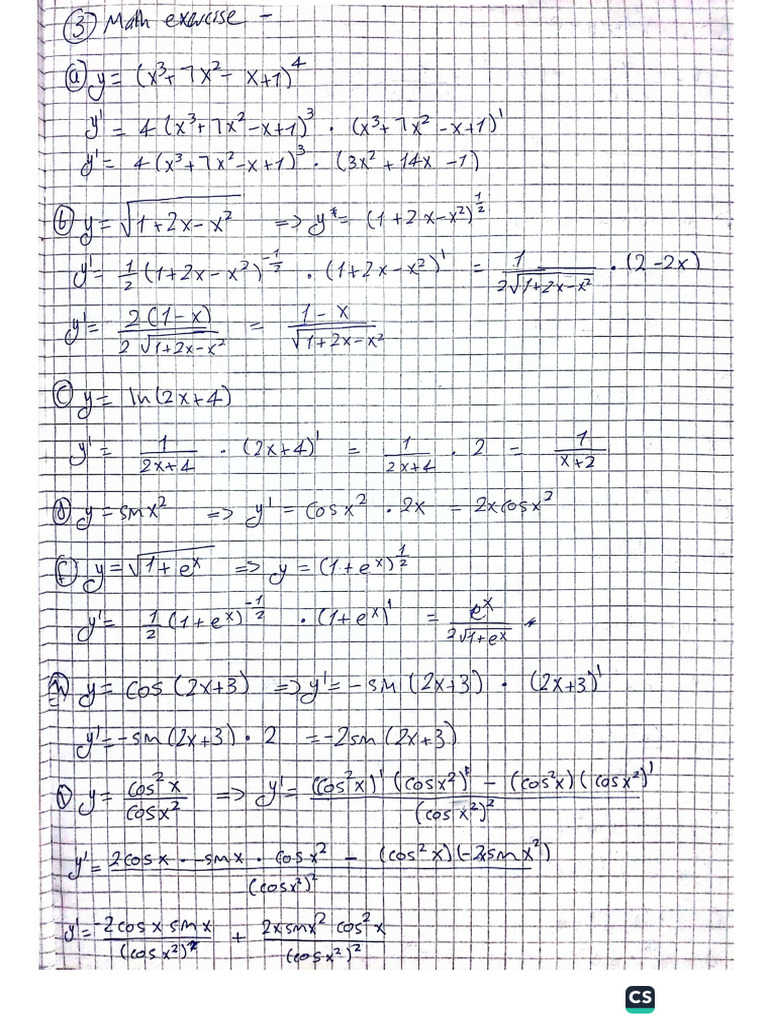 ③ Math exercise –
ⓐ y = (x³+7x²- x+1)⁴
y' = 4(x³+7x²-x+1)³ · (x³+7x²-x+1)'
y' = 4(x³+7x²-x+1)³ · (3x²+14x-1)
ⓑ y = √(1+2x-x²) => y = (1+2x-x²)^(1/2)
y' = 1/2 (1+2x-x²)^(-1/2) · (1+2x-x²)' = 1/(2√(1+2x-x²)) · (2-2x)
y' = 2(1-x)/(2√(1+2x-x²)) = (1-x)/√(1+2x-x²)
ⓒ y = ln(2x+4)
y' = 1/(2x+4) · (2x+4)' = 1/(2x+4) · 2 = 1/(x+2)
ⓓ y = sin x² => y' = cos x² · 2x = 2x cos x²
ⓕ y = √(1+eˣ) => y = (1+eˣ)^(1/2)
y' = 1/2 (1+eˣ)^(-1/2) · (1+eˣ)' = eˣ/(2√(1+eˣ))
ⓗ y = cos (2x+3) => y' = -sin (2x+3) · (2x+3)'
y' = -sin(2x+3) · 2 = -2sin(2x+3)
y = cos²x/cosx² => y' = ((cos²x)'(cosx²) - (cos²x)(cosx²)')/(cosx²)²
y' = (2cosx · -sinx · cosx² - (cos²x)(-2xsinx²))/(cosx²)²
y' = -2cosx sinx/(cosx²)² + 2xsinx² cos²x/(cosx²)²
CS